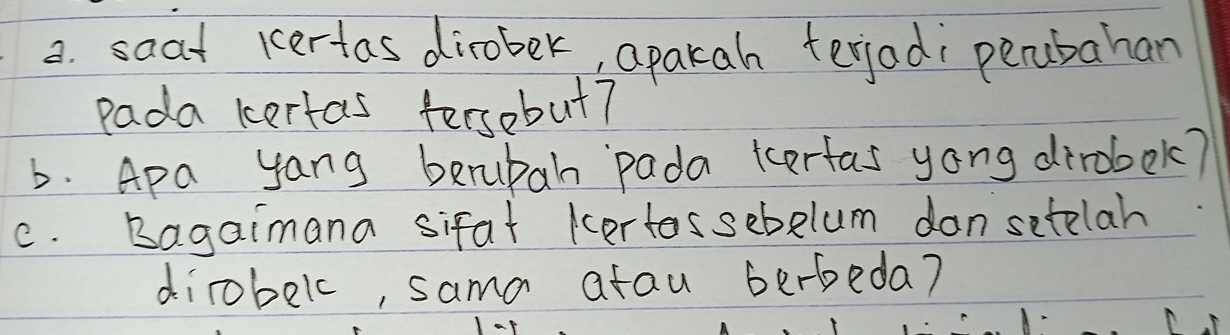 a. saat kertas dirobek, apakah terjadi perubahan
pada kertas tersebut?
b. Apa yang berubah pada kertas yang dirobek?
c. Bagaimana sifat kertas sebelum dan setelah
dirobek, sama atau berbeda?